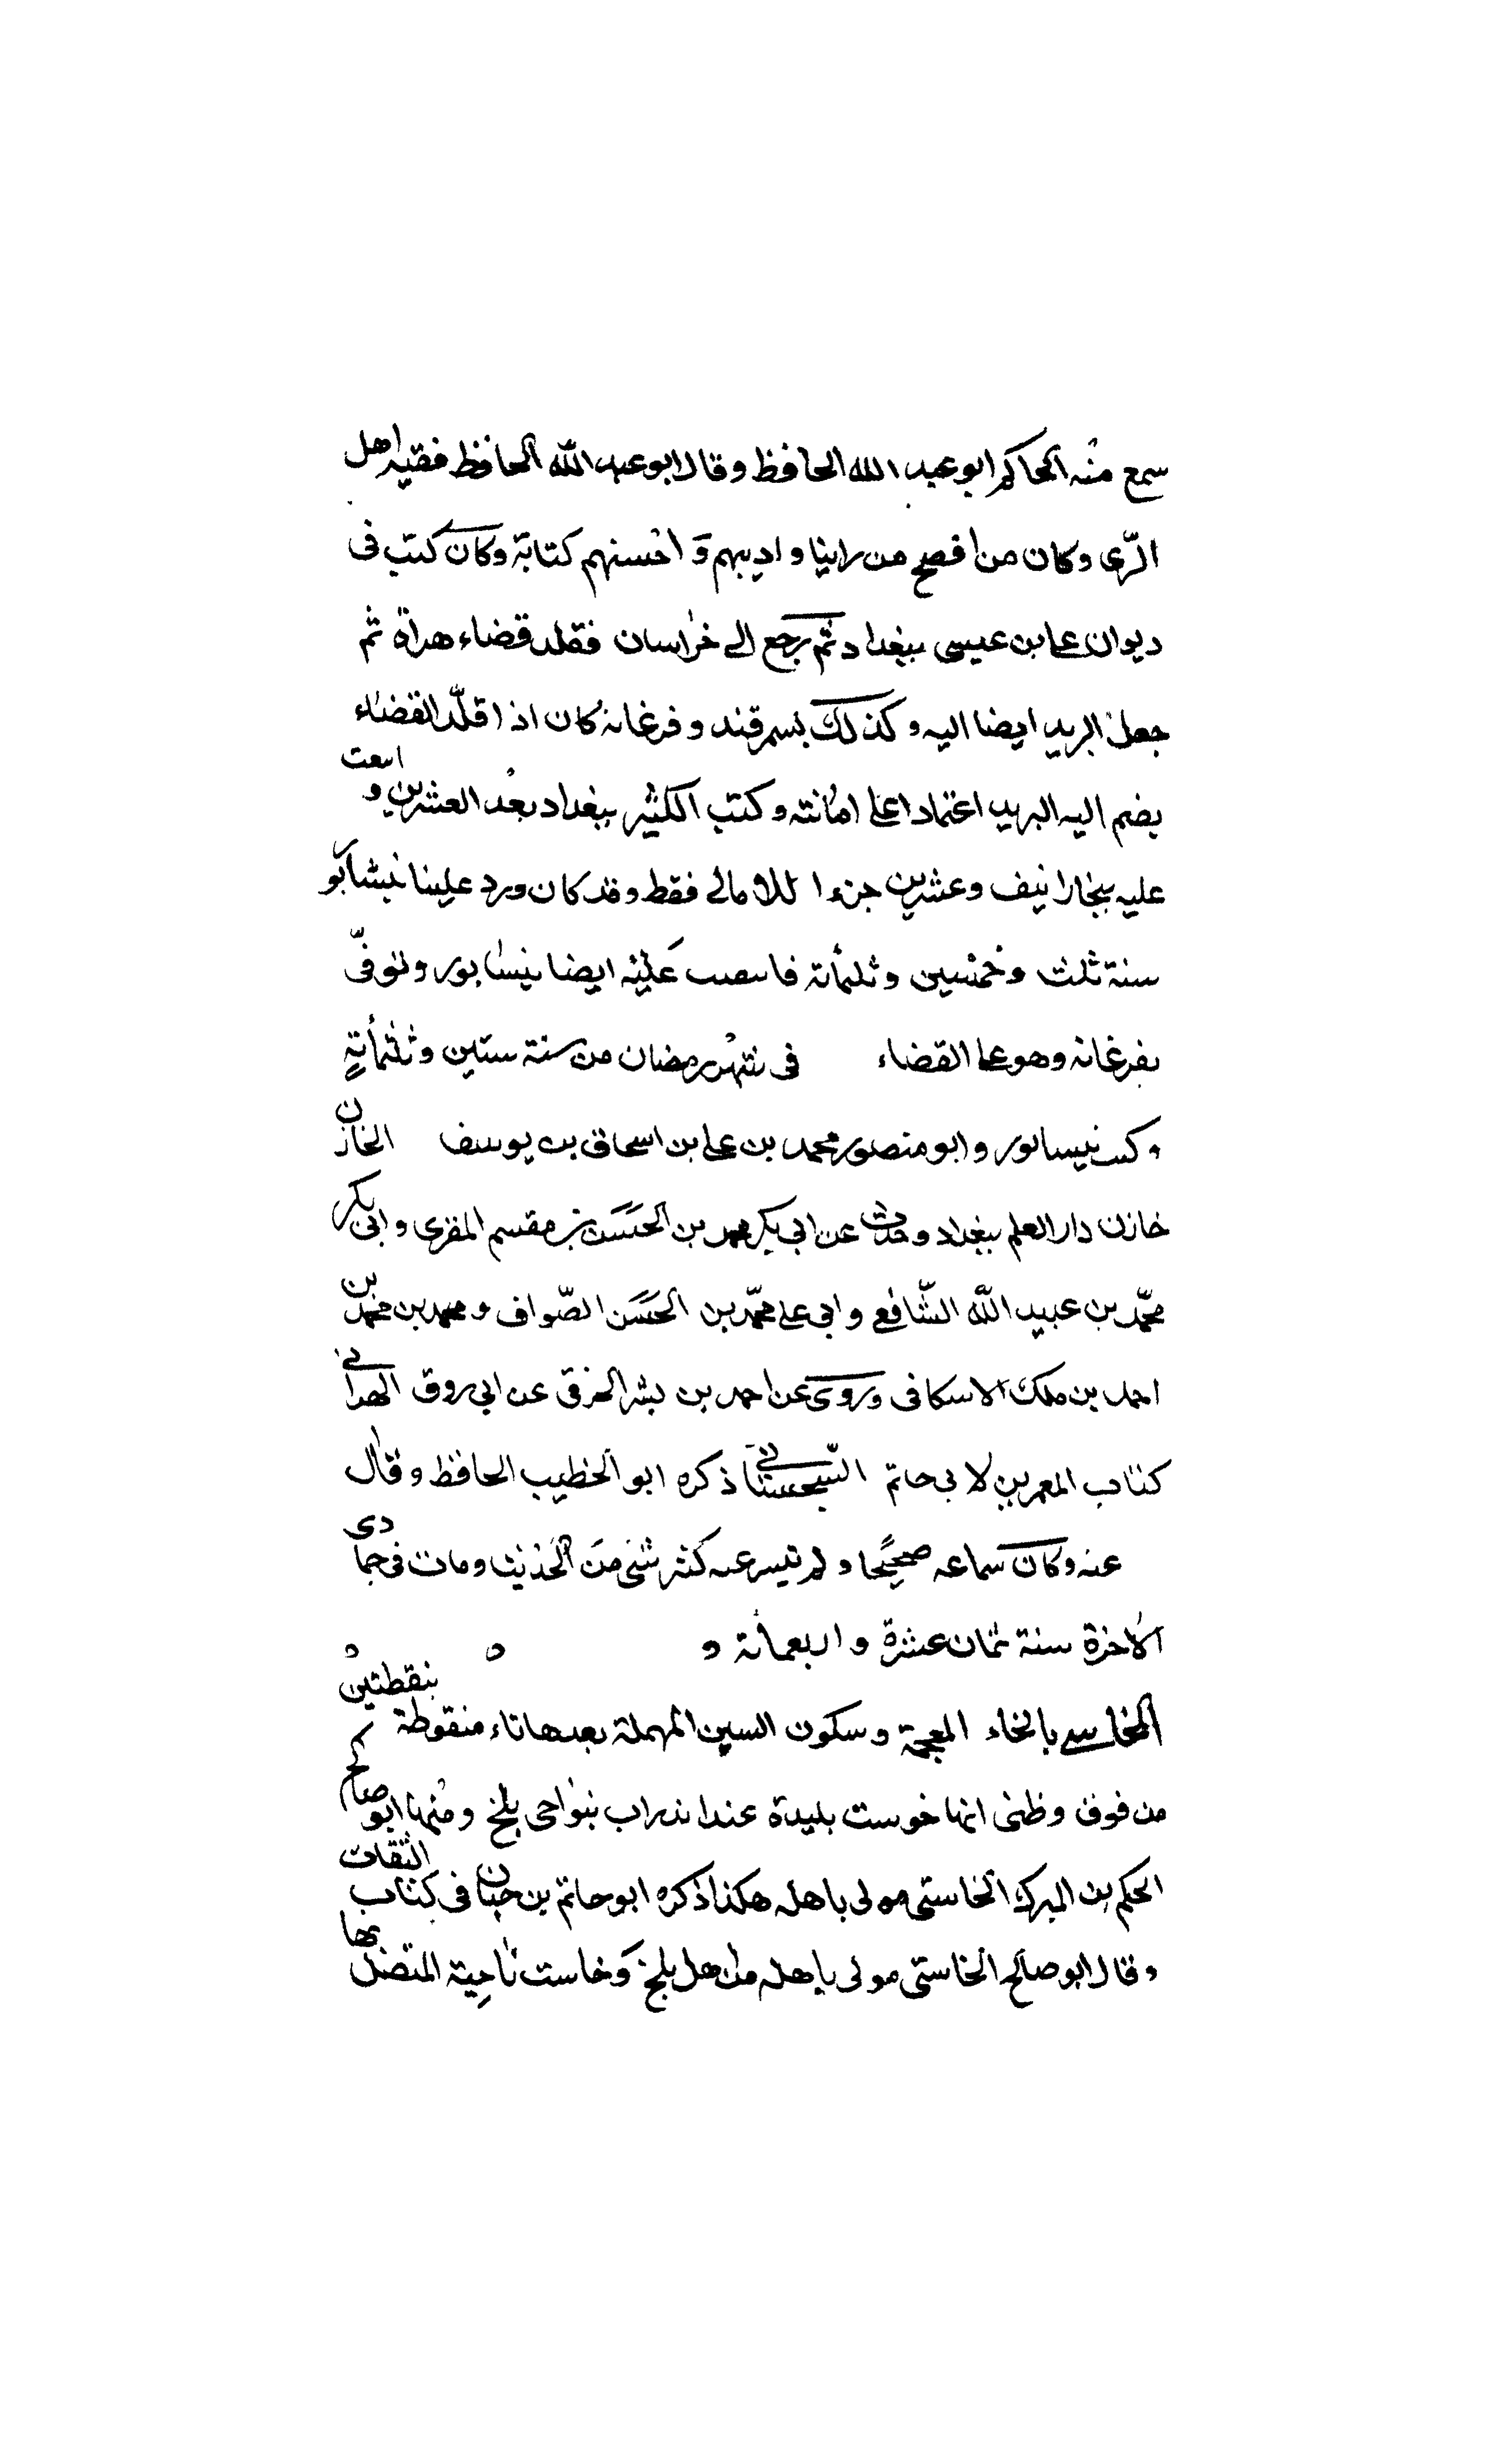 سمع منه الحاكم ابو عبد الله الحافظ وقال ابو عبد الله الحافظ فقيه اهل
الرّى وكان من افصح من راينا واديبهم وَاحسنهم كتابة وكان كتب فى
ديوان على بن عيسى ببغداد ثم رجع الى خراسان فقلد قضاء هراة ثم
جعل البريد ايضا اليه وكذلك بسمرقند وفرغانه كان اذا قلّد القضاء
يضم اليه البريد اعتمادا على امانته وكتب الكثير ببغداد بعد العشرين و
عليه ببخارا نيف وعشرين جزءا للامالى فقط وقد كان ورد علينا نيشابور
سنة ثلث وخمسين وثلثمأته عليه ايضا بنيسابور وتوفّى
بفرغانه وهو على القضاء فى شهر رمضان من سنة ستين وثلثمأتةٍ
نيسابور وابو منصور محمد بن على بن اسحاق بن يوسف الخازن
خازن دار العلم ببغداد وحدث عن ابي بكر محمد بن الحسَن بن مقسم المقرى وابى بكر
محمّد بن عبيد الله الشّافعى وابي على محمّد بن الحَسَن الصّواف ومحمد بن محمد بن
احمد بن ملك الاسكافى وروى عن احمد بن بشر الخرقى عن ابي روق الهدانى
كتاب المعمرين لابى حاتم السّجستانى ذكره ابو الخطيب الحافظ وقال
عنه وكان سماعه صحيحًا ولم كثر شى من الحديث ومات فى جمادى
الاخرة سنة ثمان عشرة واربعمائة ه ه ه
الخاستى بالخاء المعجمة وسكون السين المهملة بعدها تاء منقوطة بنقطتين
من فوق وظنى انها خوست بليدة عند اندراب بنواحى بلخ ومنها ابو صالح
الحكم بن المبرك الخاستى مولى باهله هكذا ذكره ابو حاتم بن حبان فى كتاب الثقات
وقال ابو صالح الخاستى مولى باهله من اهل بلخ وخاست ناحية المتصل بها